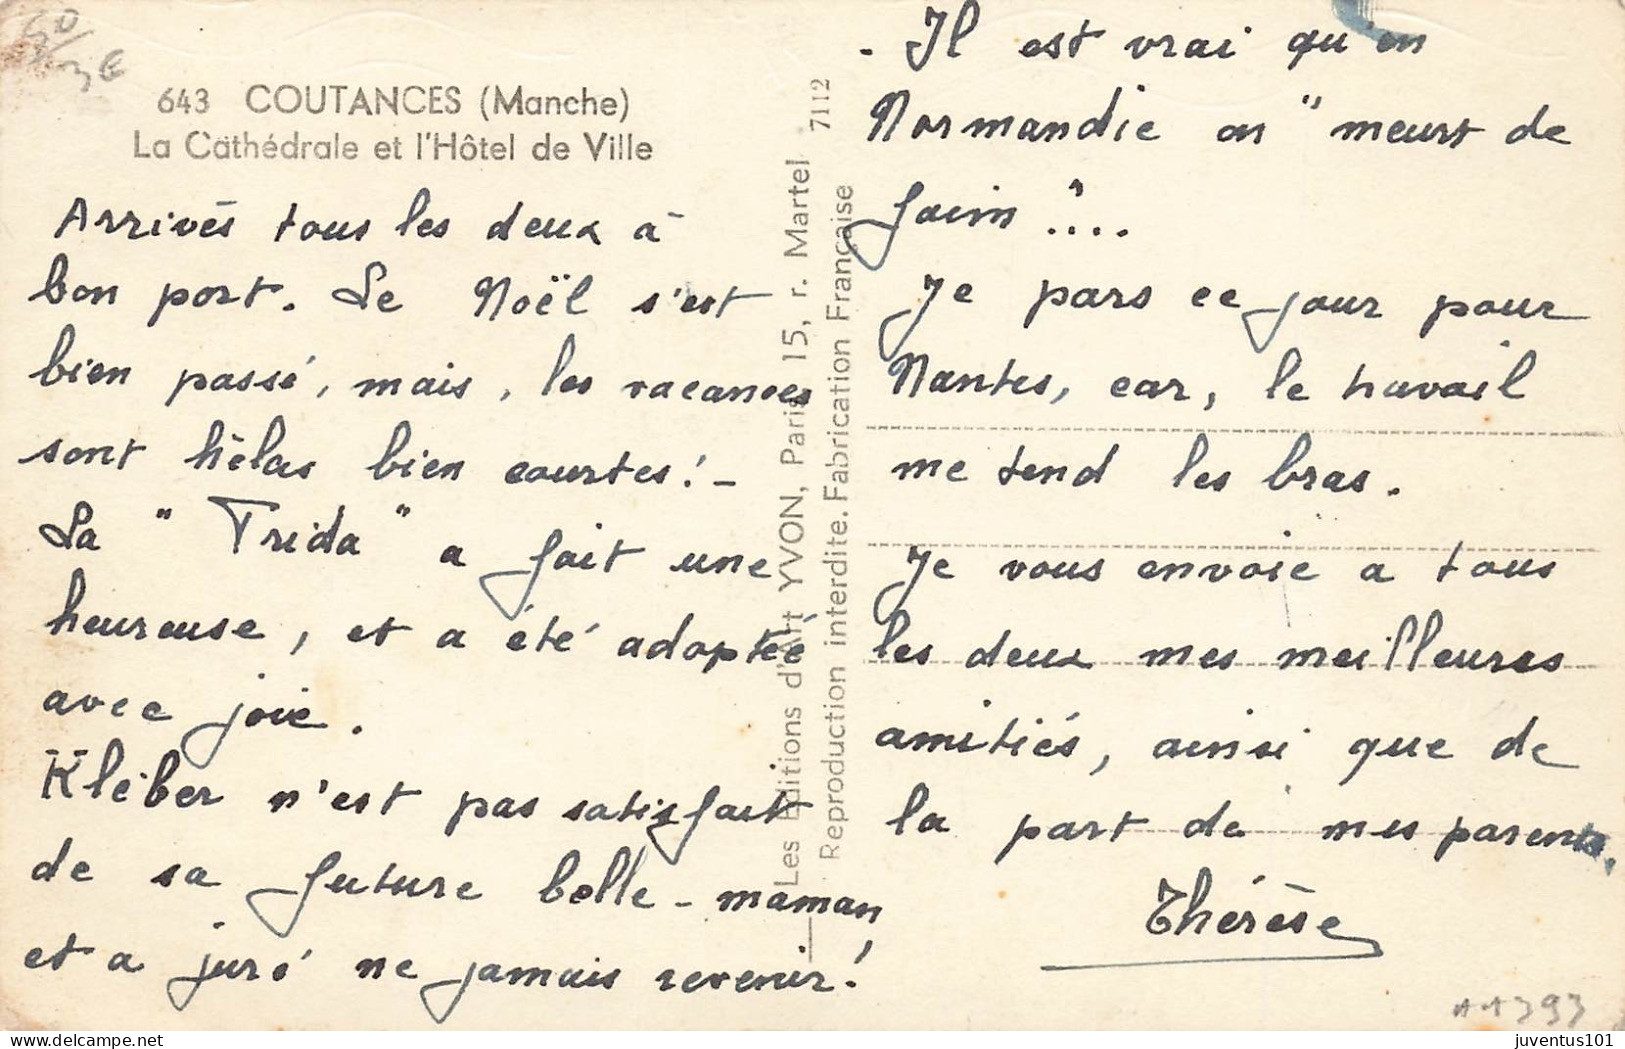 643 COUTANCES (Manche)
La Cathédrale et l'Hôtel de Ville
Arrivés tous les deux à
bon port. Le Noël s'est
bien passé, mais, les vacances
sont hélas bien courtes! -
La "Frida" a fait une
heureuse, et a été adoptée
avec joie.
Kléber n'est pas satisfait
de sa future belle-maman
et a juré ne jamais revenir!
Les Editions d'Art YVON, Paris 15, r. Martel 7112
Reproduction interdite. Fabrication Française
- Il est vrai qu'en
Normandie on "meurt de
faim"...
Je pars ce jour pour
Nantes, car, le travail
me tend les bras.
Je vous envoie a tous
les deux mes meilleures
amitiés, ainsi que de
la part de mes parents.
Thérèse
juventus101